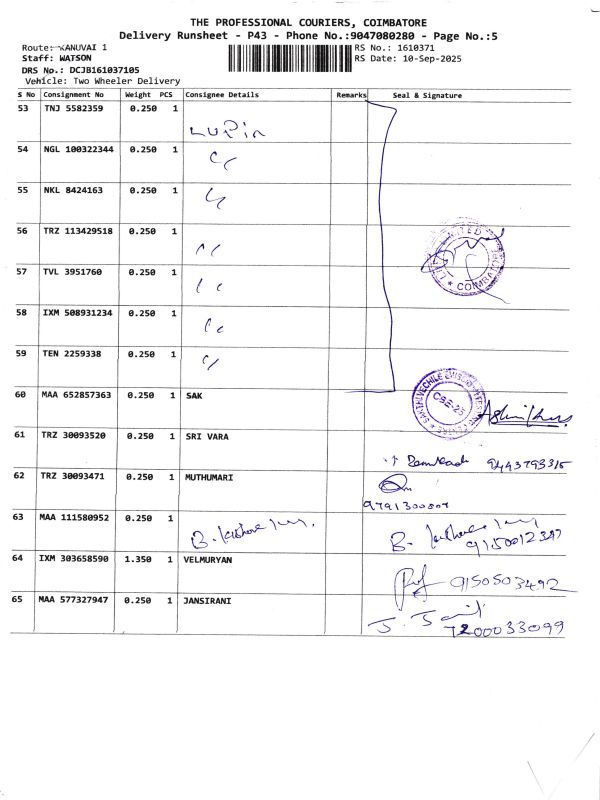 THE PROFESSIONAL COURIERS, COIMBATORE
Delivery Runsheet - P43 - Phone No.:9047080280 - Page No.:5
Route: KANUVAI 1
RS No.: 1610371
Staff: WATSON
RS Date: 10-Sep-2025
DRS No.: DCJB161037105
Vehicle: Two Wheeler Delivery
S No Consignment No Weight PCS Consignee Details Remarks Seal & Signature
53 TNJ 5582359 0.250 1
LUPin
54 NGL 100322344 0.250 1
55 NKL 8424163 0.250 1
56 TRZ 113429518 0.250 1
57 TVL 3951760 0.250 1
58 IXM 508931234 0.250 1
59 TEN 2259338 0.250 1
COIMBATORE
60 MAA 652857363 0.250 1 SAK
CBE-25
61 TRZ 30093520 0.250 1 SRI VARA
9443793315
62 TRZ 30093471 0.250 1 MUTHUMARI
63 MAA 111580952 0.250 1
64 IXM 303658590 1.350 1 VELMURYAN
9150503492
65 MAA 577327947 0.250 1 JANSIRANI
7200033099